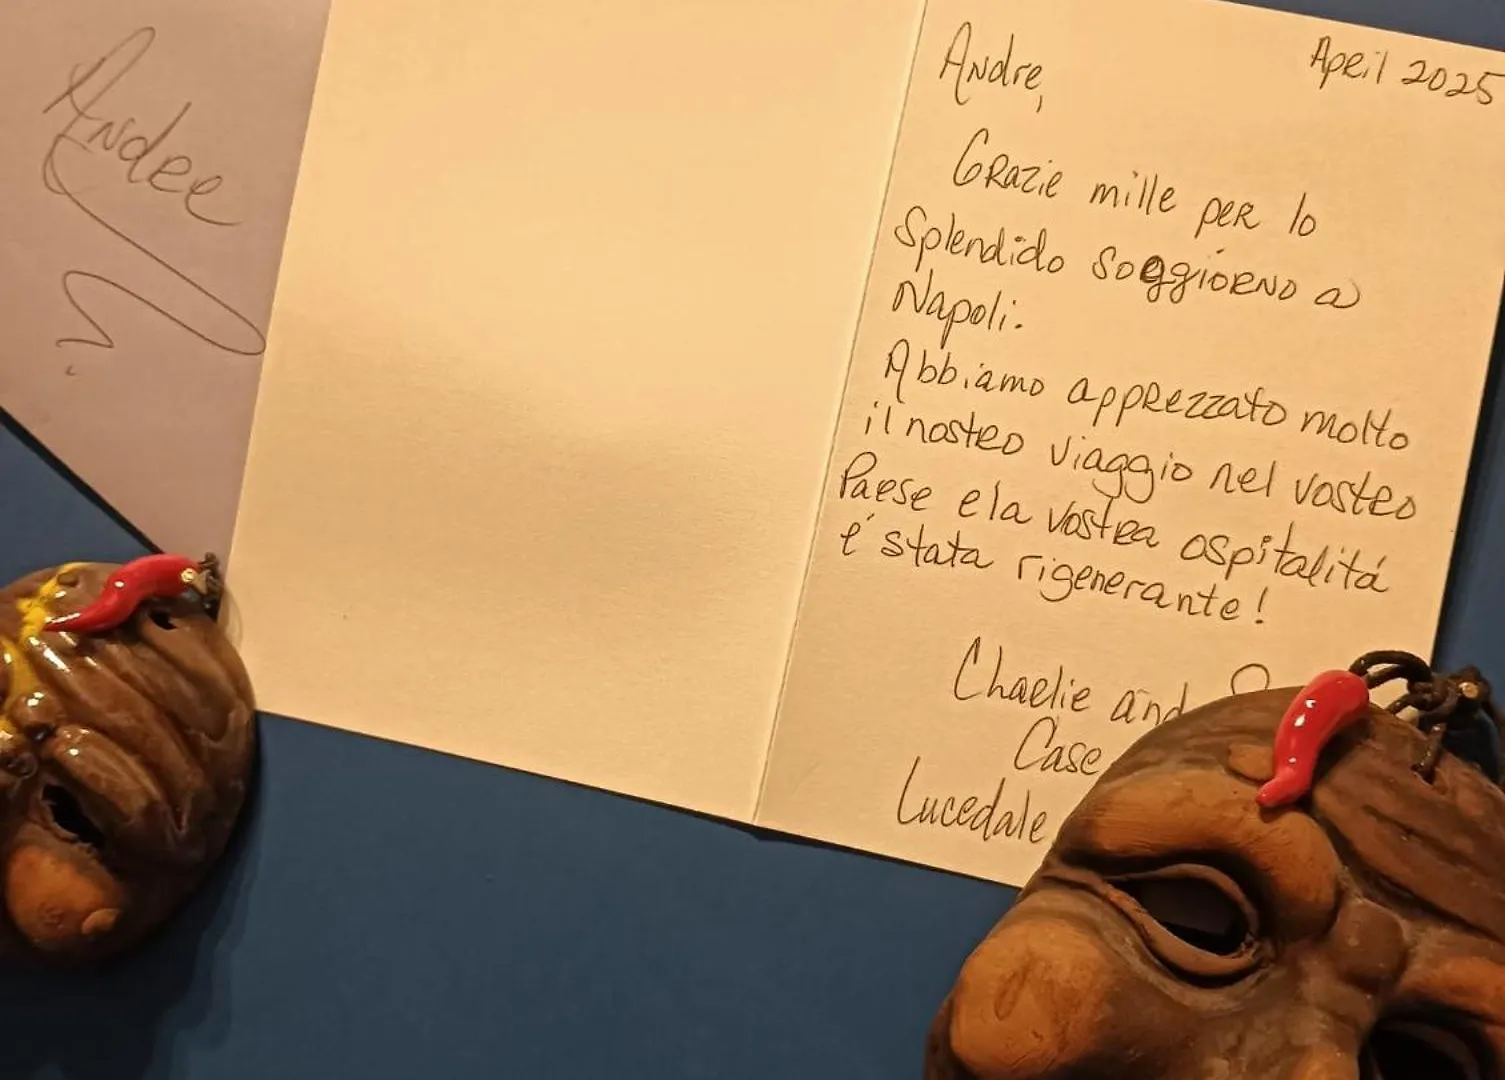 Andre
April 2025
Andre,
Grazie mille per lo
splendido soggiorno a
Napoli.
Abbiamo apprezzato molto
il nostro viaggio nel vostro
Paese e la vostra ospitalitá
é stata rigenerante!
Charlie and
Case
Lucedale